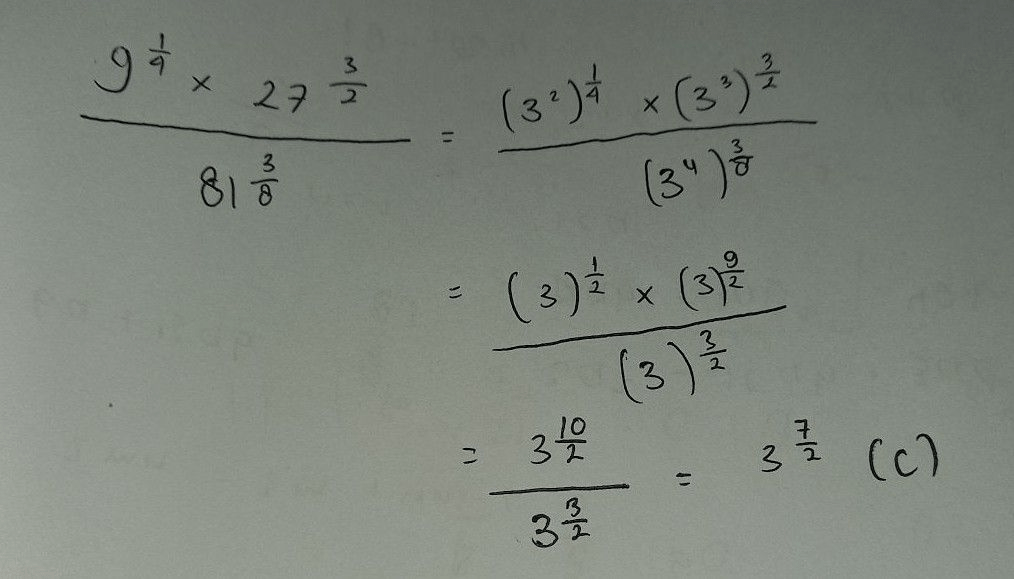 9^{\frac{1}{4}} × 27^{\frac{3}{2}} / 81^{\frac{3}{8}} = (3^2)^{\frac{1}{4}} × (3^3)^{\frac{3}{2}} / (3^4)^{\frac{3}{8}}
= (3)^{\frac{1}{2}} × (3)^{\frac{9}{2}} / (3)^{\frac{3}{2}}
= 3^{\frac{10}{2}} / 3^{\frac{3}{2}} = 3^{\frac{7}{2}} (C)